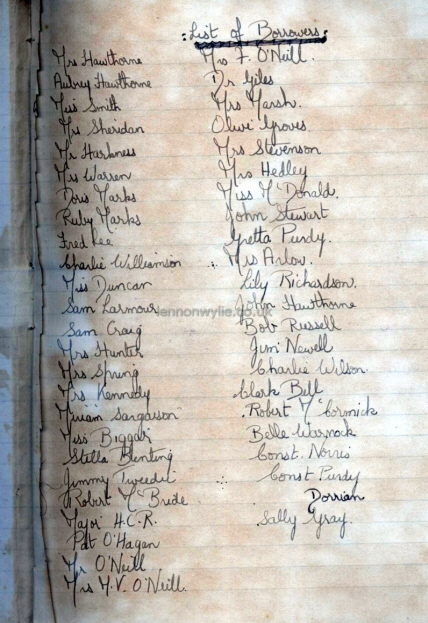 List of Borrowers:
Mrs Hawthorne
Aubrey Hawthorne
Miss Smith
Mrs Sheridan
Mr Harkness
Mrs Warren
Doris Marks
Ruby Marks
Fred Lee
Charlie Williamson
Miss Duncan
Sam Larmour
Sam Craig
Mrs Hunter
Mrs Spring
Mrs Kennedy
Miriam Sargaison
Miss Biggar
Stella Bunting
Jimmy Tweedie
Robert McBride
Major H.C.R.
Pat O'Hagan
Mr O'Neill
Mrs M.V. O'Neill.
Mrs F. O'Neill.
Dr Giles
Mrs Marsh.
Olive Groves.
Mrs Stevenson
Mrs Hedley
Miss McDonald.
John Stewart
Gretta Purdy.
Mrs Arlow.
Lily Richardson.
John Hawthorne
Bob Russell
Jim Newell
Charlie Wilson.
Clark Bell
Robert McCormick
Belle Warnock
Const. Norris
Const Purdy
Dorrian
Sally Gray.
lennonwylie.co.uk